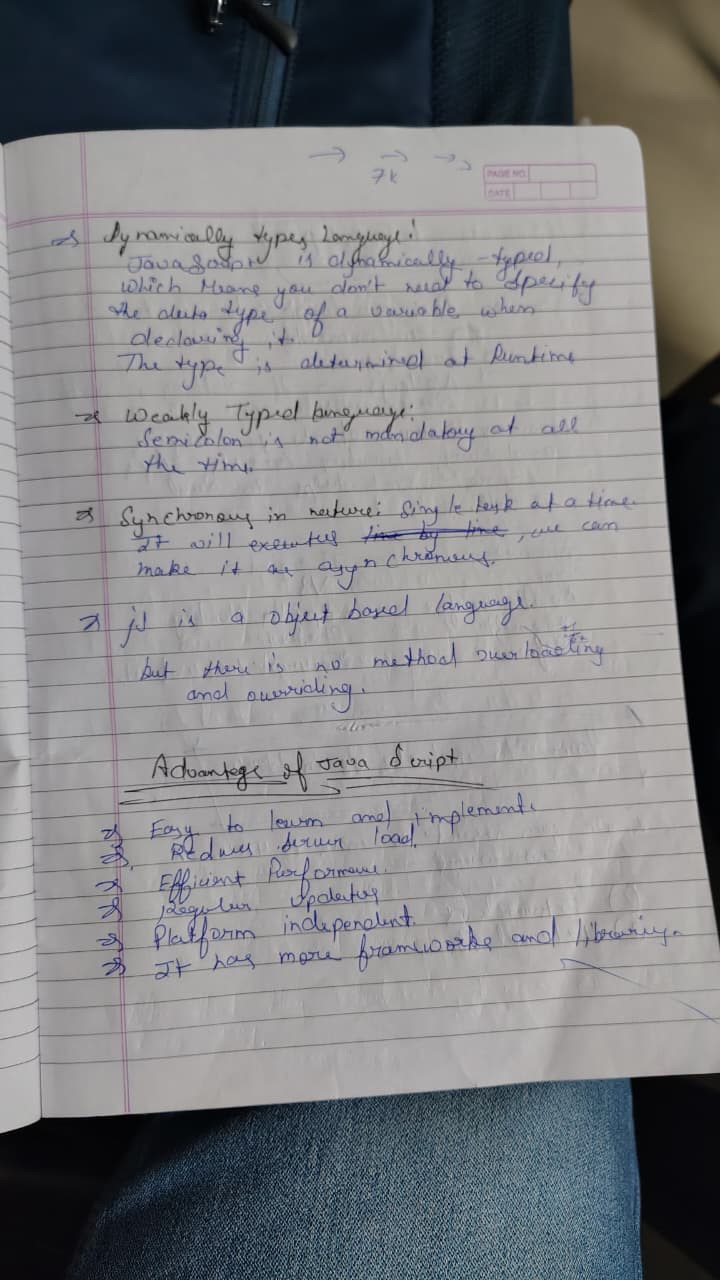 → → →
7k
PAGE NO.
DATE
⇒ Dynamically types Language:
JavaScript is dynamically-typed,
which Means you don't need to Specify
the data type of a variable when
declaring it.
The type is determined at Runtime
⇒ Weakly Typed language:
Semicolon is not mandatory at all
the time.
⇒ Synchronous in nature: Single task at a time.
It will executes line by line, we can
make it as asynchronous.
⇒ js is a object based language.
but there is no method overloading
and overriding.
Advantage of Java Script
⇒ Easy to learn and implement.
⇒ Reduces server load.
⇒ Efficient Performance.
⇒ Regular Updates
⇒ Platform independent.
⇒ It has more frameworks and library.